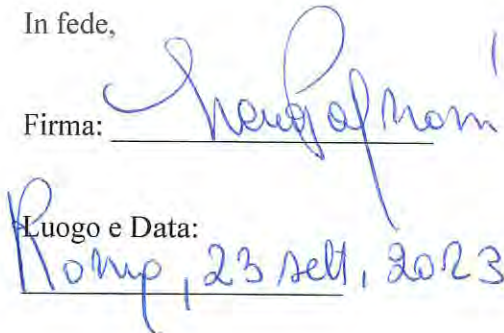 In fede,
Firma:
Luogo e Data:
Roma, 23 sett, 2023